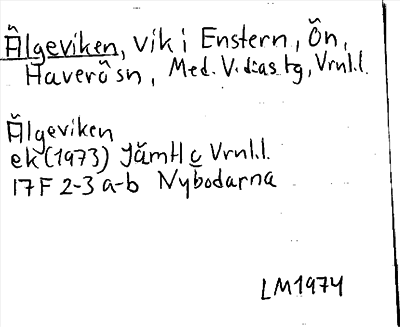 Älgeviken, vik i Enstern, Ön,
Haverö sn, Med. V. d:as tg, Vrnl.l.
Älgeviken
ek (1973) Jämtl o Vrnl.l.
17F 2-3 a-b Nybodarna
LM1974